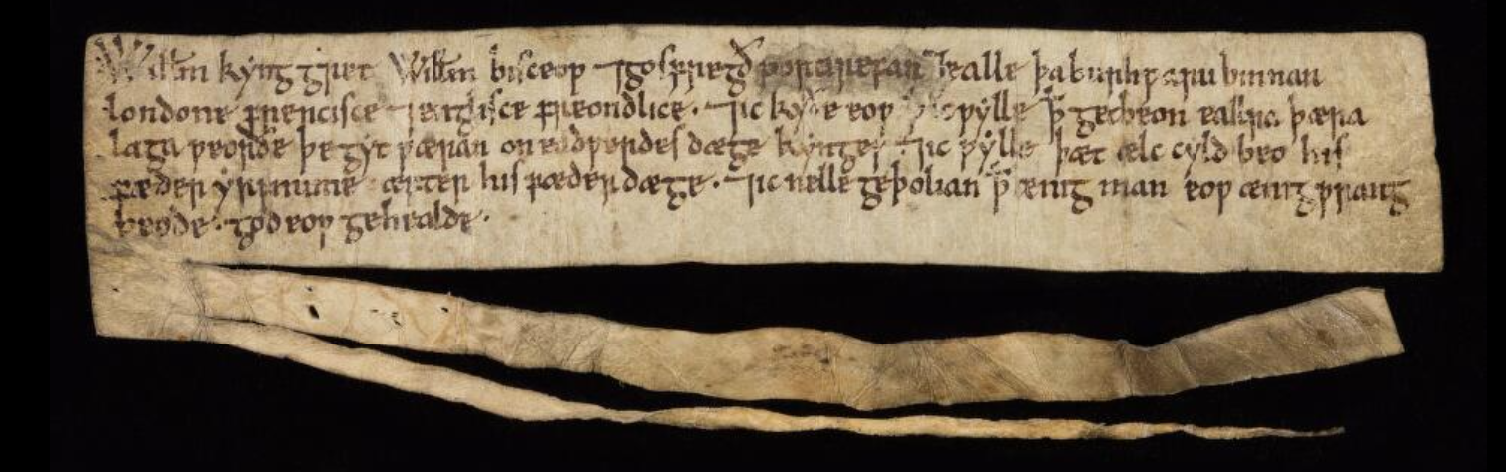 Willm̄ kyng gret Willm̄ bisceop ⁊ gosfregð portirefan ⁊ ealle þa burhƿaru binnan
londone frencisce ⁊ englisce freondlice · ⁊ ic kyðe eoƿ ꝥ ic ƿylle ꝥ get beon eallra þæra
laga ƿeorðe þe gyt ƿæran on eadƿerdes dæge kynges ⁊ ic ƿylle þæt ælc cyld beo his
fæder yrfnume æfter his fæder dæge · ⁊ ic nelle geþolian ꝥ ænig man eoƿ ænig ƿrang
beode · god eoƿ gehealde ·